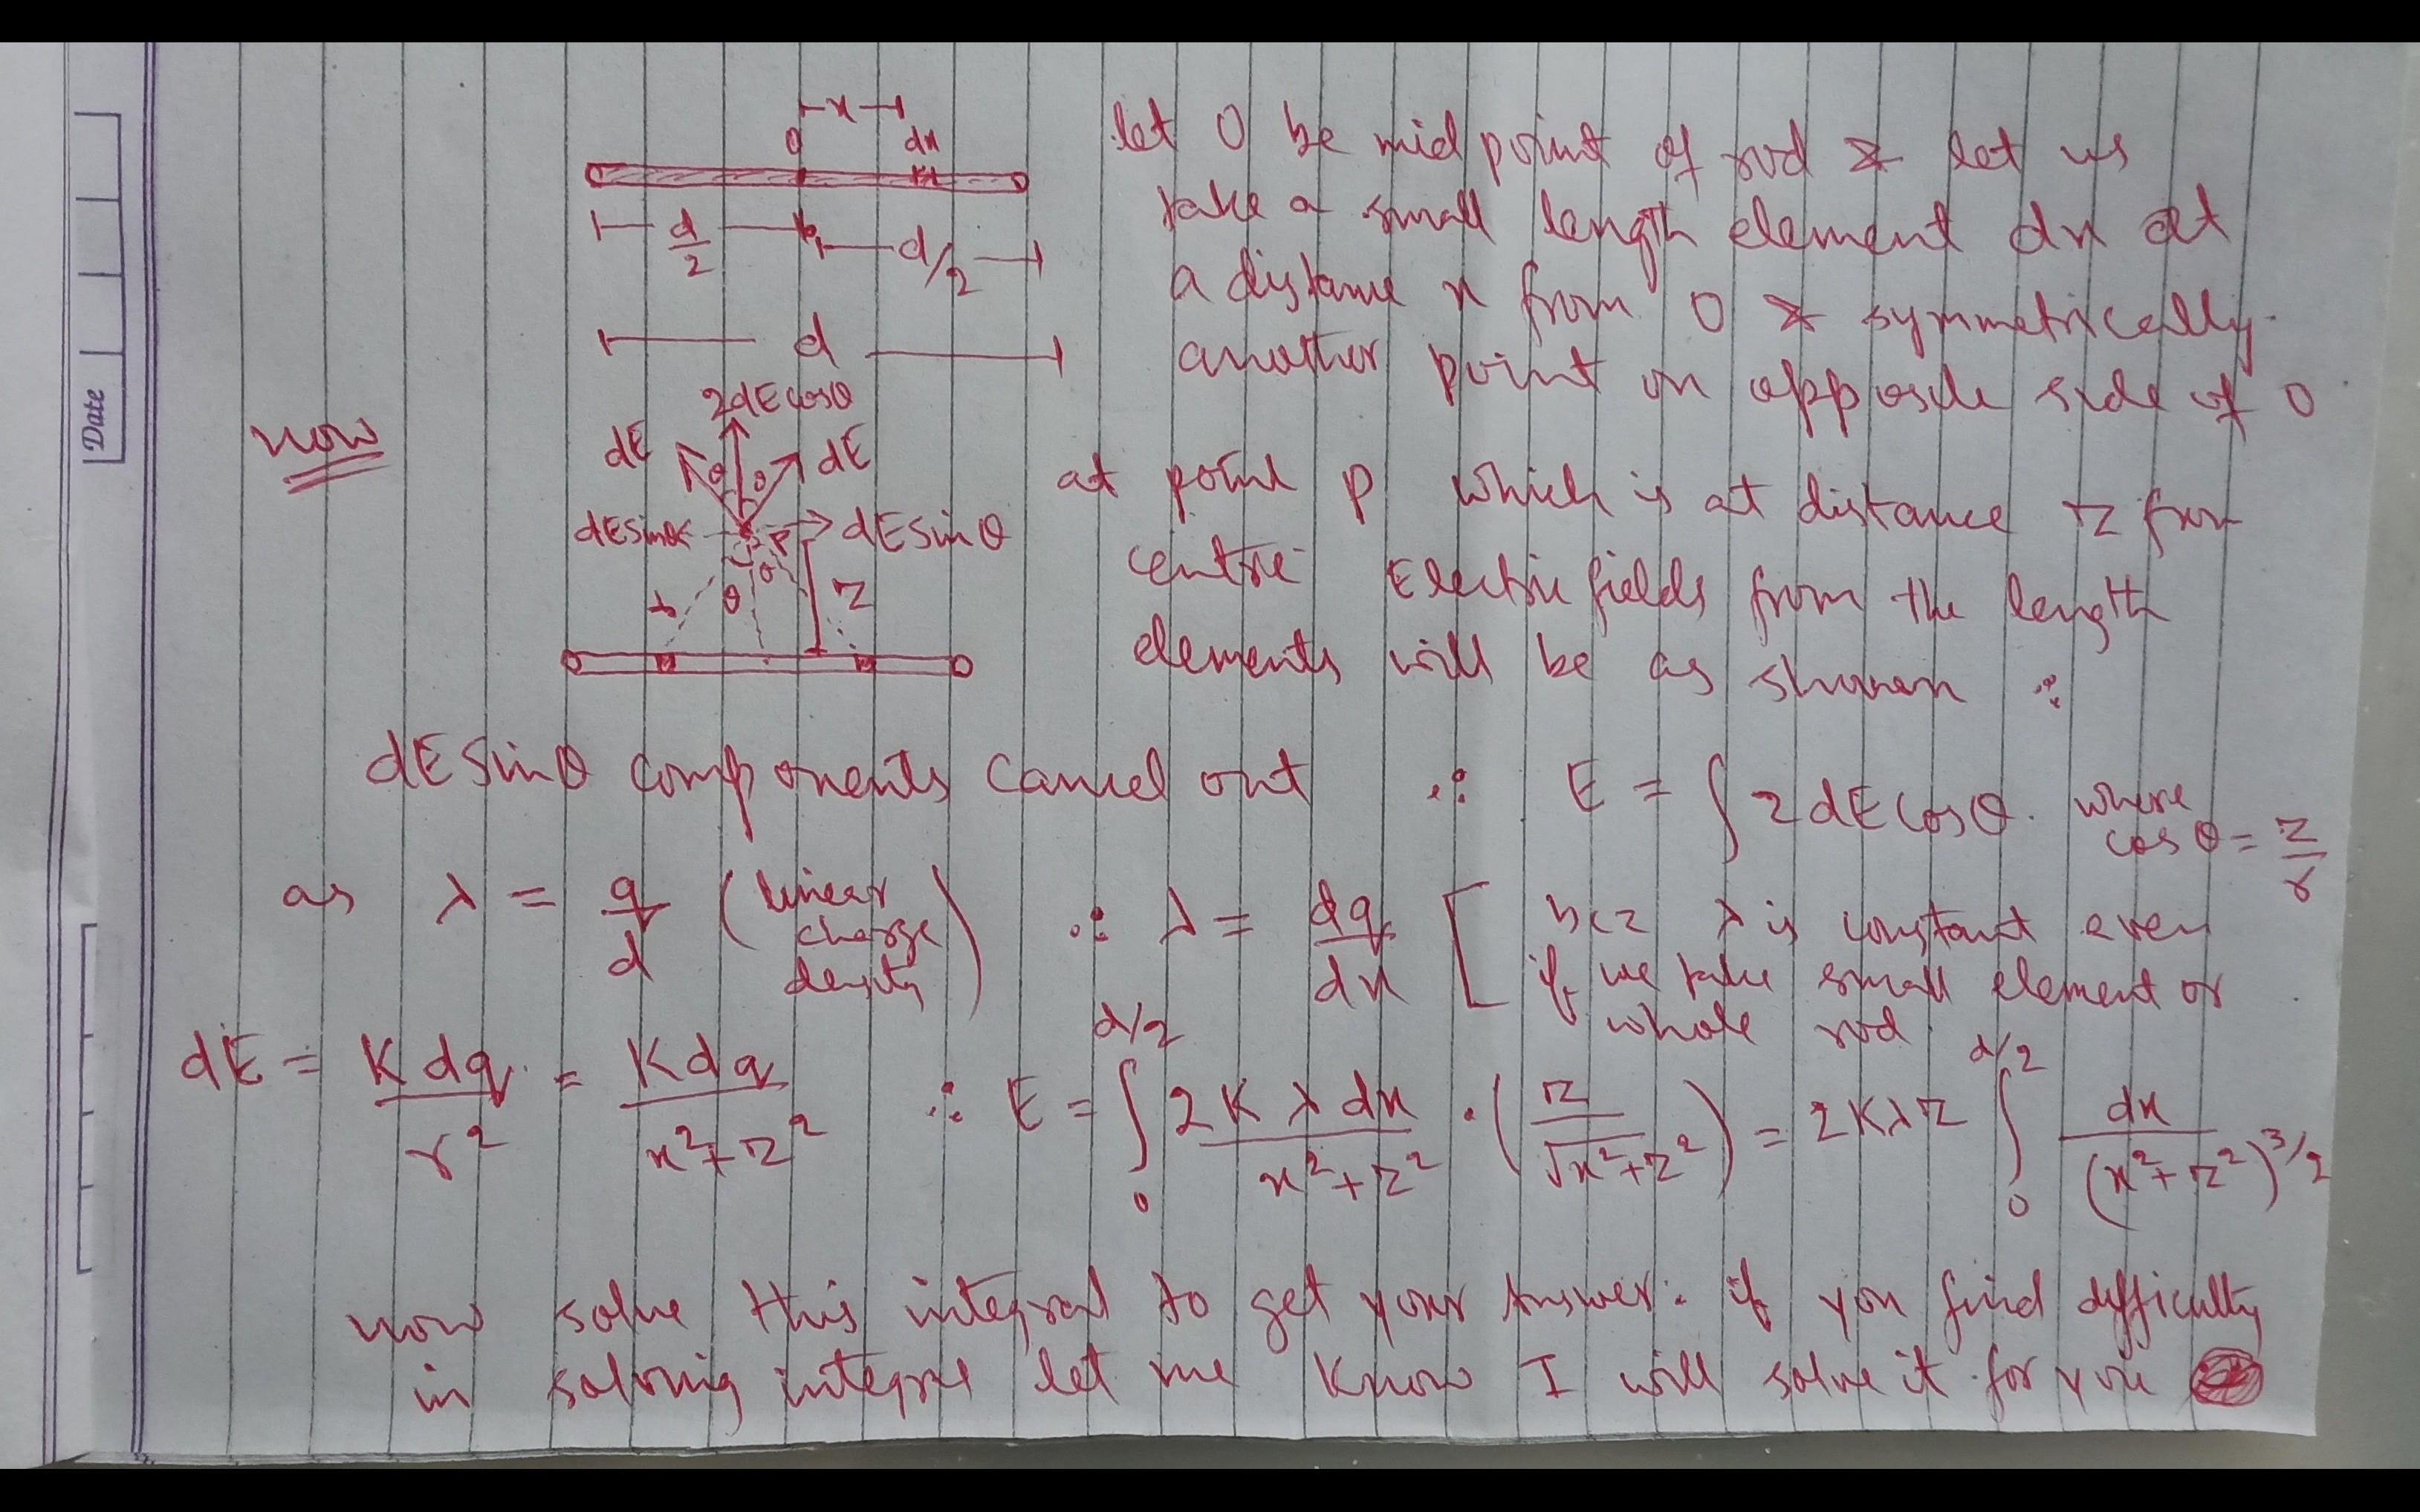 x
O
dx
let O be mid point of rod & let us
take a small length element dx at
a distance x from O & symmetrically
another point on opposite side of O
d/2
d/2
d
2dE cosθ
now
dE θ θ dE
at point P which is at distance z from
dE sinθ P dE sinθ
centre Electric fields from the length
r θ θ z
elements will be as shown ∴
dE sinθ components cancel out ∴ E = ∫ 2dE cosθ. where cos θ = z/r
as λ = q/d (linear charge density) ∴ λ = dq/dx [ bcz λ is constant even
if we take small element or
whole rod
dE = K dq/r² = K dq/x²+z² ∴ E = ∫₀^d/2 2Kλdx/x²+z² · (z/√x²+z²) = 2Kλz ∫₀^d/2 dx/(x²+z²)^3/2
now solve this integral to get your Answer. if you find difficulty
in solving integral let me know I will solve it for you
Date